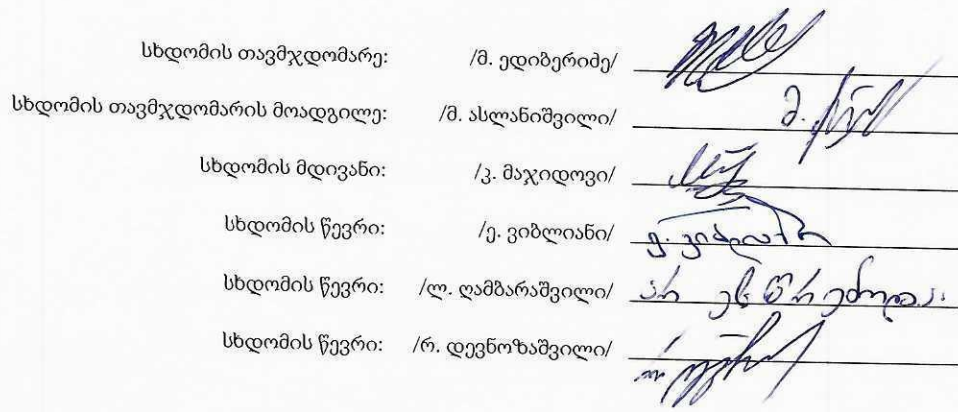 სხდომის თავმჯდომარე: /მ. ედიბერიძე/
სხდომის თავმჯდომარის მოადგილე: /მ. ასლანიშვილი/ მ.
სხდომის მდივანი: /კ. მაჯიდოვი/
სხდომის წევრი: /ე. ვიბლიანი/ ე. ვიბლიანი
სხდომის წევრი: /ლ. ღამბარაშვილი/ არ ესწრებოდა.
სხდომის წევრი: /რ. დევნოზაშვილი/